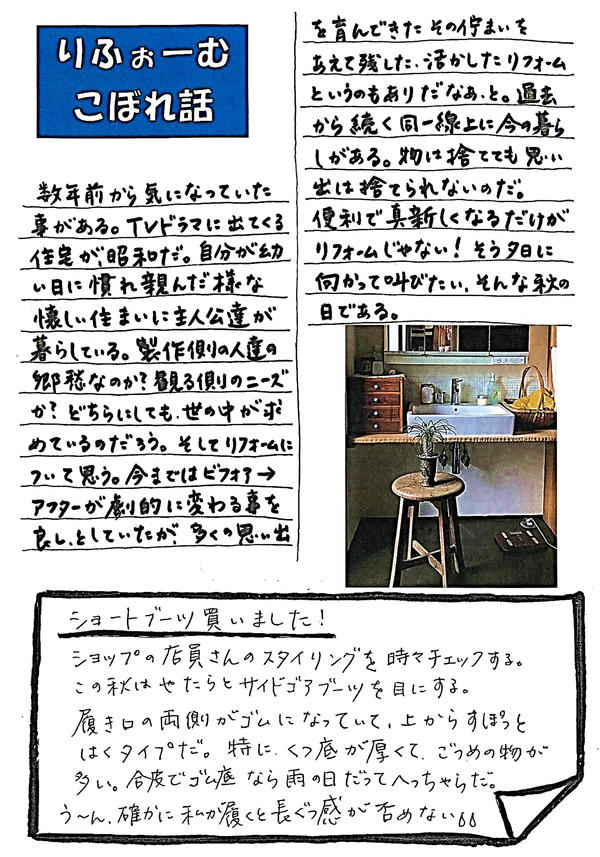 りふぉーむ
こぼれ話
数年前から気になっていた
事がある。TVドラマに出てくる
住宅が、昭和だ。自分が幼
い日に慣れ親んだ様な
懐しい住まいに主人公達が
暮らしている。製作側の人達の
郷愁なのか？観る側のニーズ
か？どちらにしても、世の中が求
めているのだろう。そしてリフォームに
ついて思う。今まではビフォア→
アフターが劇的に変わる事を
良し、としていたが、多くの思い出
を育んできたその佇まいを
あえて残した、活かしたリフォーム
というのもありだなあ、と。過去
から続く同一線上に今の暮ら
しがある。物は捨てても思い
出は捨てられないのだ。
便利で真新しくなるだけが
リフォームじゃない！そう夕日に
向かって叫びたい、そんな秋の
日である。
ショートブーツ買いました！
ショップの店員さんのスタイリングを時々チェックする。
この秋はやたらとサイドゴアブーツを目にする。
履き口の両側がゴムになっていて、上からすぽっと
はくタイプだ。特に、くつ底が厚くて、ごつめの物が
多い。合皮でゴム底なら雨の日だってへっちゃらだ。
う〜ん、確かに私が履くと長ぐつ感が否めない